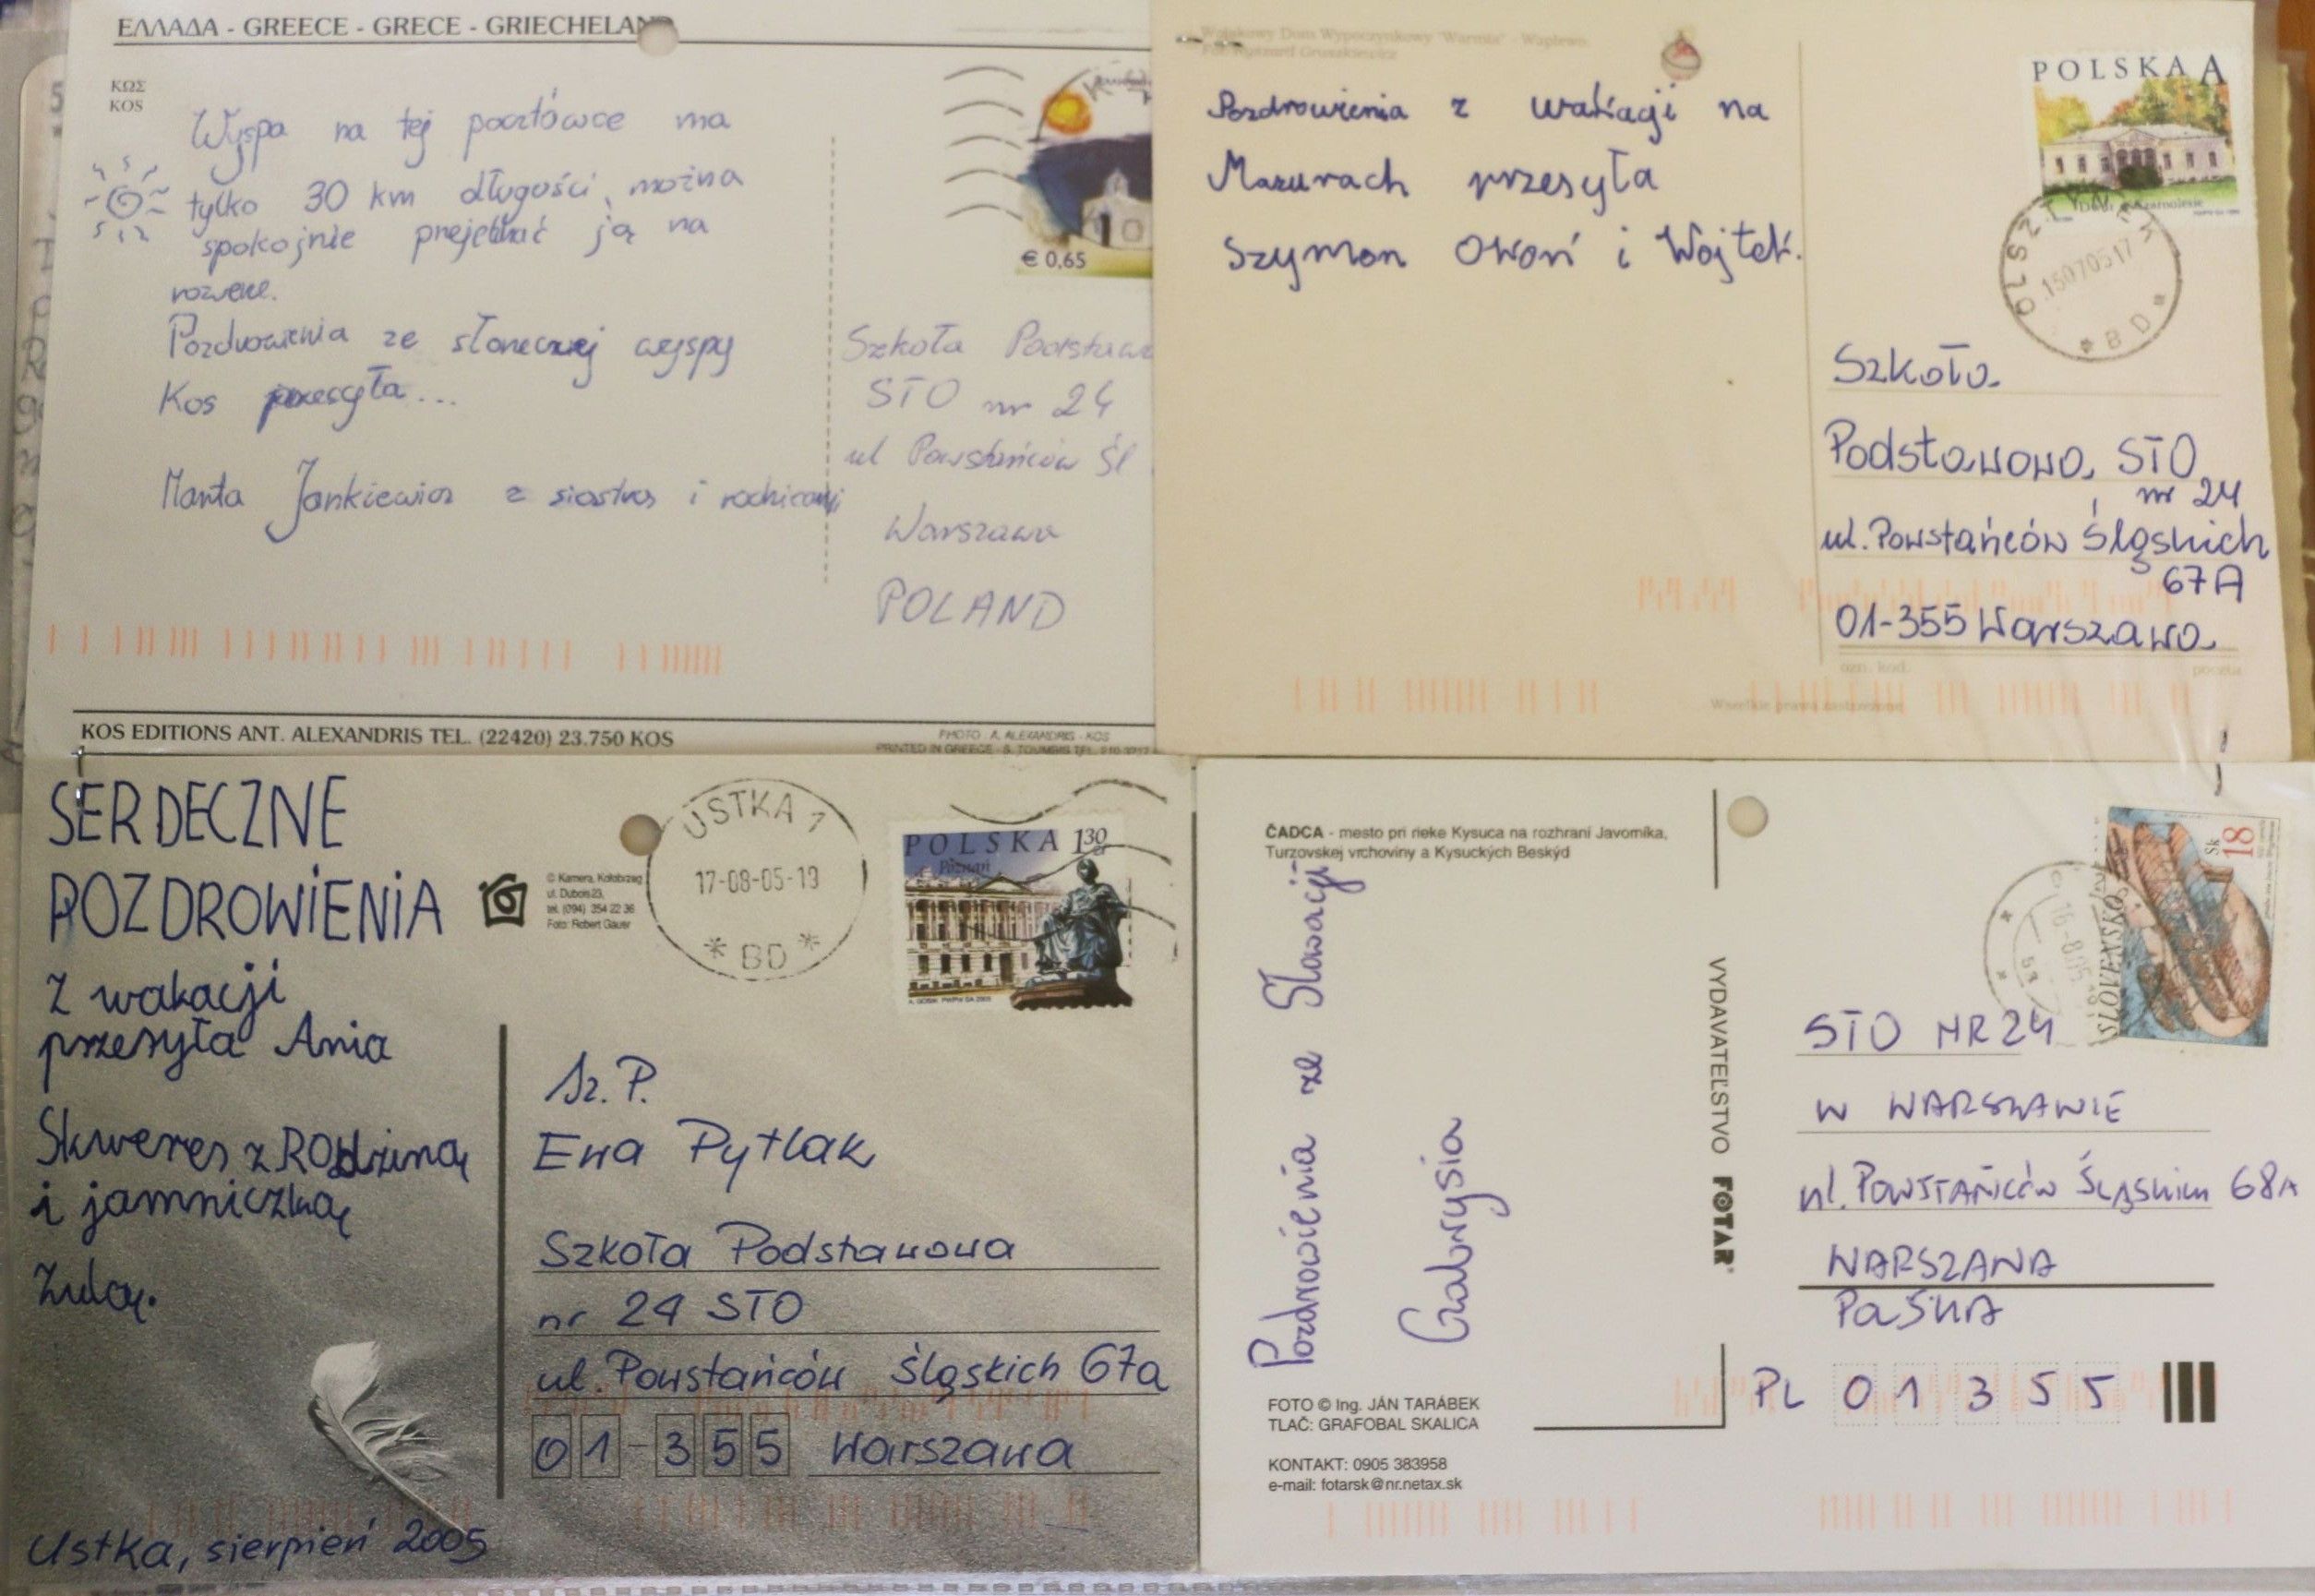 ΕΛΛΑΔΑ - GREECE - GRECE - GRIECHELAN
ΚΩΣ
KOS
Wyspa na tej pocztówce ma
tylko 30 km długości, można
spokojnie przejechać ją na
rowerze.
Pozdrowienia ze słonecznej wyspy
Kos przesyła...
Marta Jankiewicz z siostrą i rodzicami
€ 0,65
Szkoła Podstaw
STO nr 24
ul Powstańców Śl
Warszawa
POLAND
KOS EDITIONS ANT. ALEXANDRIS TEL. (22420) 23.750 KOS
PHOTO : A. ALEXANDRIS - KOS
PRINTED IN GREECE - S. TOUMBIS TEL. 210-3217
Wojskowy Dom Wypoczynkowy "Warmia" - Waplewo
Fot. Ryszard Gruszkiewicz
Pozdrowienia z wakacji na
Mazurach przesyła
Szymon Owoń i Wojtek.
POLSKA A
OLSZTYNEK
15070517
* B D *
Szkoła
Podstawowa STO
nr 24
ul. Powstańców Śląskich
67A
01-355 Warszawa
ozn. kod.
poczta
Wszelkie prawa zastrzeżone
SERDECZNE
POZDROWIENIA
z wakacji
przesyła Ania
Skweres z ROdziną
i jamniczką
Zulą.
Ustka, sierpień 2005
© Kamera, Kołobrzeg
ul. Dubois 23,
tel. (094) 354 22 36
Foto: Robert Gauer
USTKA 1
17-08-05-19
* BD *
POLSKA 130 zł
Poznań
Sz. P.
Ewa Pytlak
Szkoła Podstawowa
nr 24 STO
ul. Powstańców Śląskich 67a
01-355 Warszawa
ČADCA - mesto pri rieke Kysuca na rozhraní Javorníka,
Turzovskej vrchoviny a Kysuckých Beskýd
Pozdrowienia ze Słowacji
Gabrysia
VYDAVATEĽSTVO FOTAR
Sk 18
SLOVENSKO
STO NR 24
W WARSZAWIE
ul. POWSTAŃCÓW ŚLĄSKICH 68A
WARSZAWA
POLSKA
PL 01355
FOTO © Ing. JÁN TARÁBEK
TLAČ: GRAFOBAL SKALICA
KONTAKT: 0905 383958
e-mail: fotarsk@nr.netax.sk